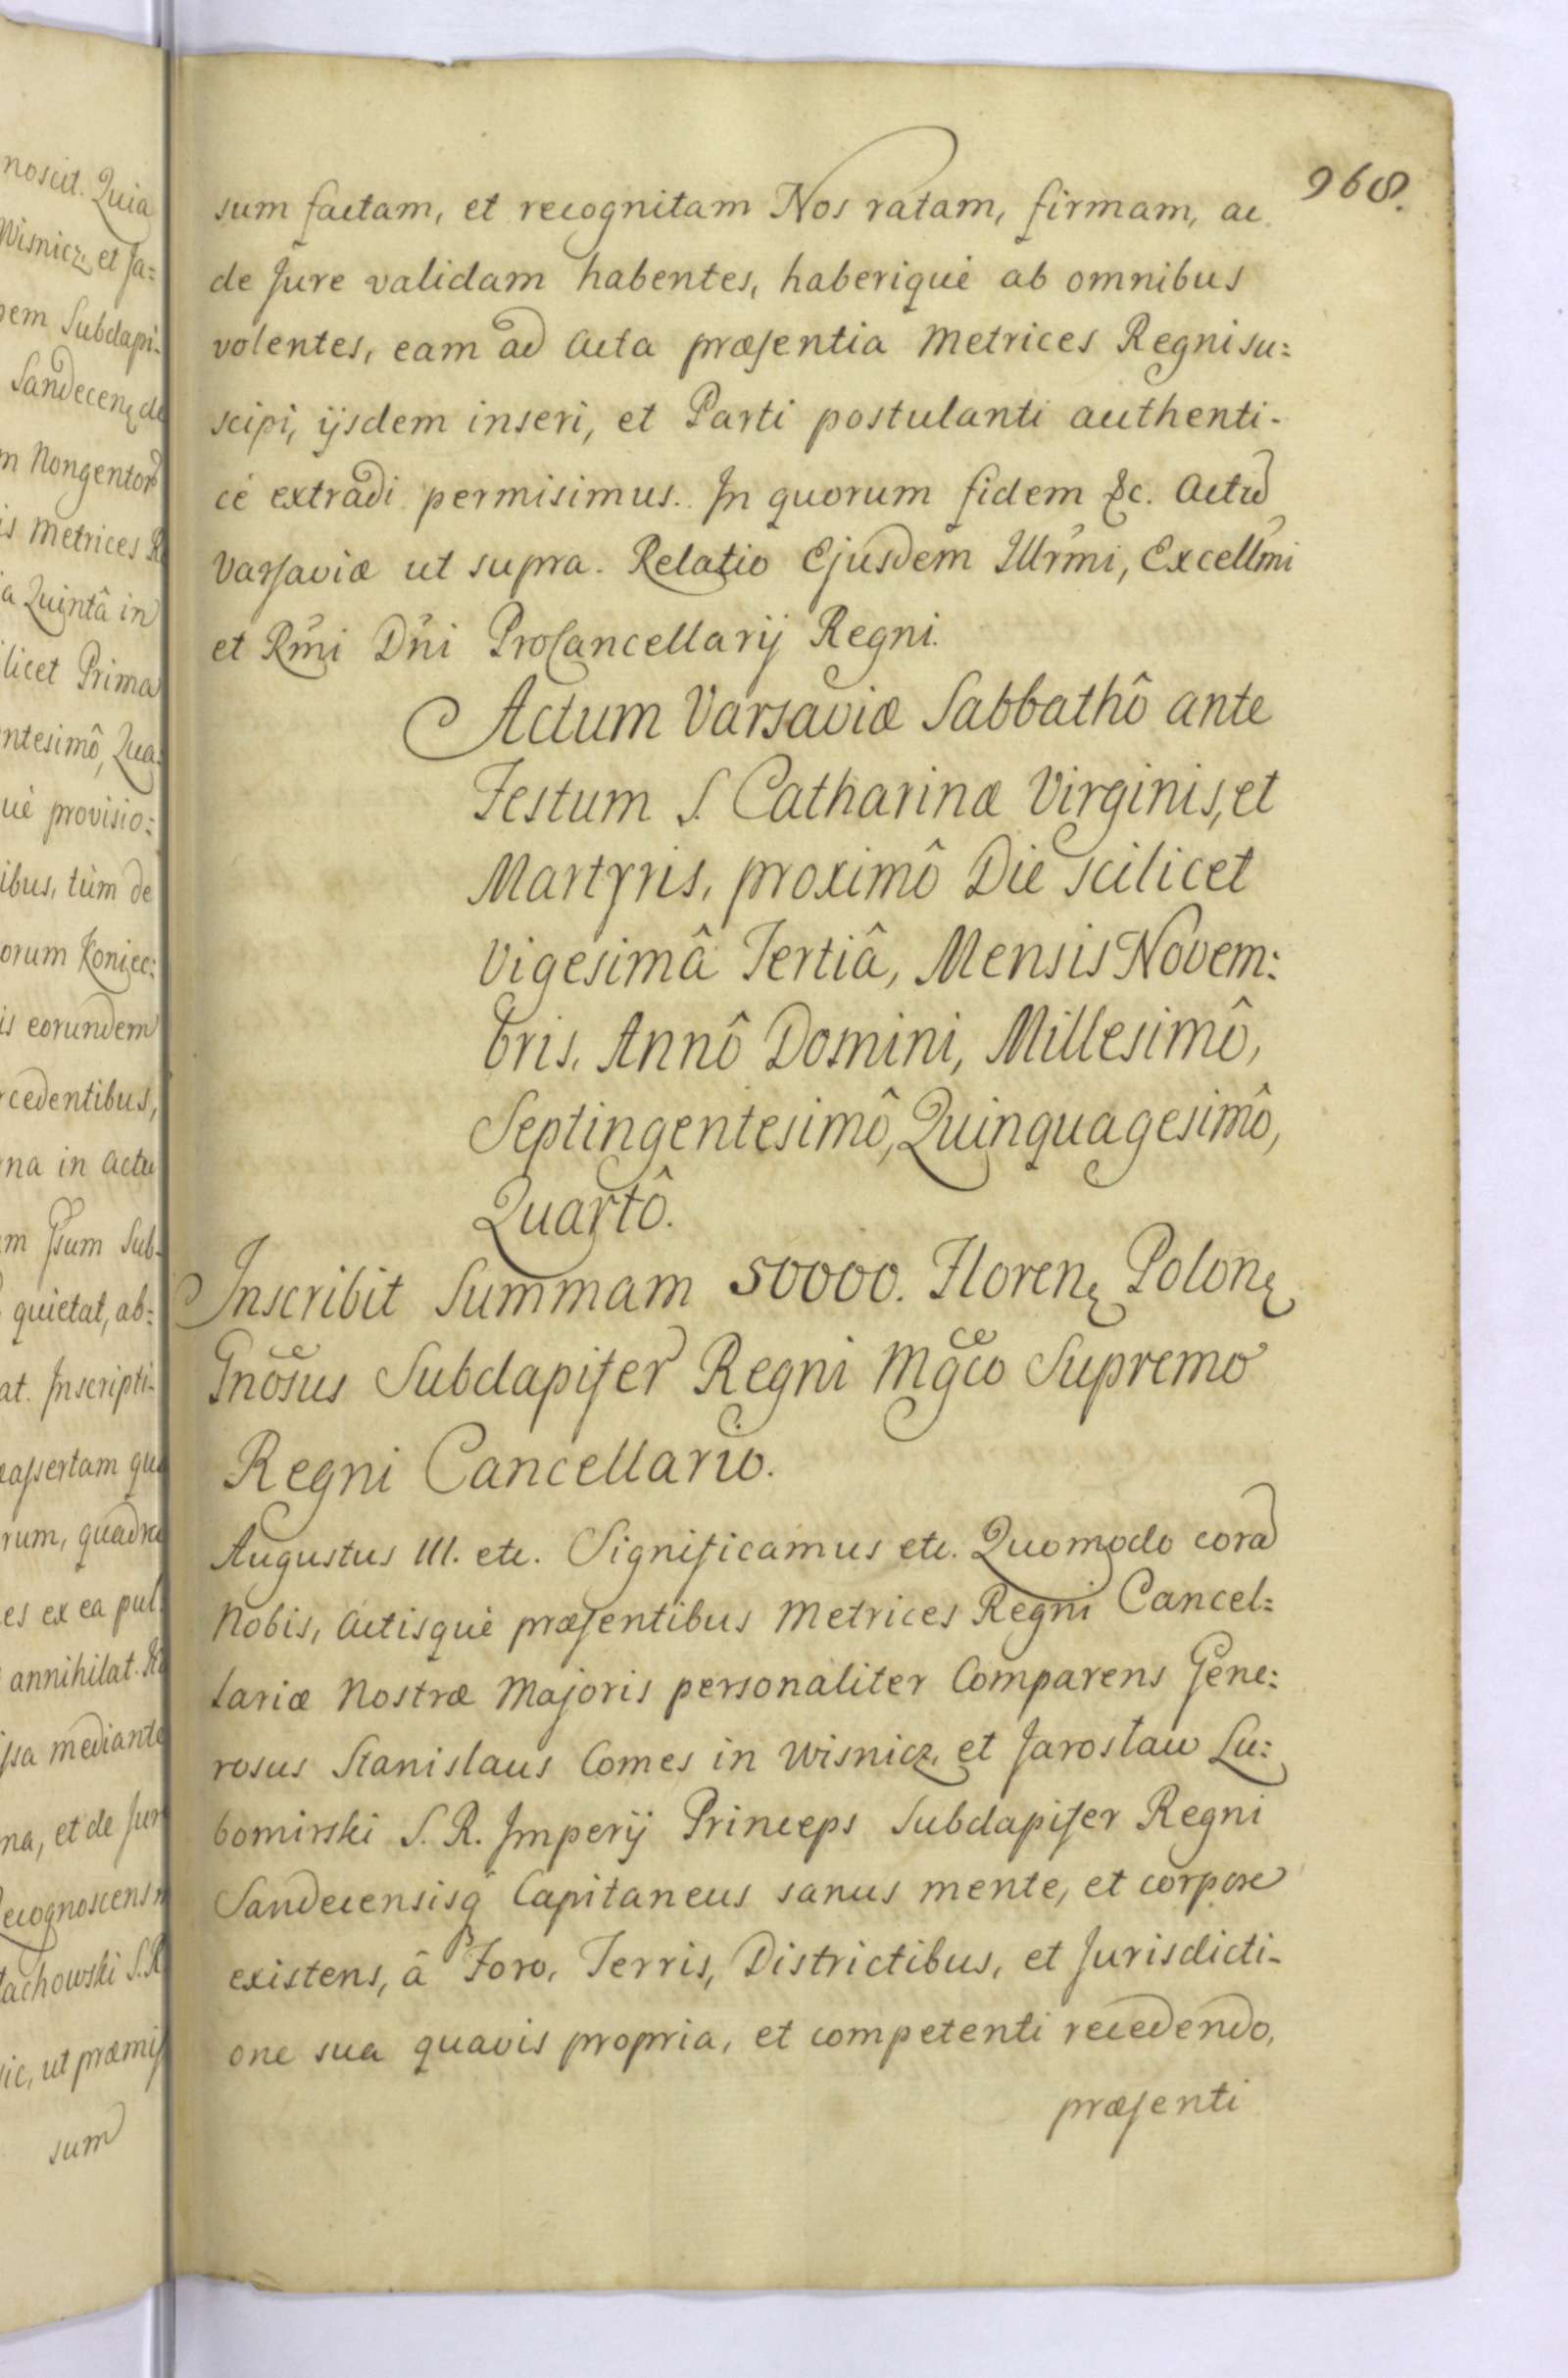 968.
sum factam, et recognitam Nos ratam, firmam, ac
de Jure validam habentes, haberiquè ab omnibus
volentes, eam ad Acta præsentia Metrices Regni su:
scipi, ijsdem inseri, et Parti postulanti authenti-
cè extradi permisimus. In quorum fidem &c. Actũ
Varsaviæ ut supra. Relatio Ejusdem Illrmi, Excellmi
et Rmi Dni ProCancellarij Regni.
Actum Varsaviæ Sabbathô ante
Festum S. Catharinæ Virginis, et
Martyris, proximô Die scilicet
Vigesimâ Tertiâ, Mensis Novem:
bris, Annô Domini, Millesimô,
Septingentesimô, Quinquagesimô,
Quartô.
Inscribit Summam 50000. Floren: Polon:
Gnosus Subdapifer Regni Mgco Supremo
Regni Cancellario.
Augustus III. etc. Significamus etc. Quomodo corã
Nobis, Actisquè præsentibus Metrices Regni Cancel:
lariæ Nostræ Majoris personaliter Comparens Gene:
rosus Stanislaus Comes in Wisnicz, et Jarosław Lu:
bomirski S. R. Imperij Princeps Subdapifer Regni
Sandecensisq Capitaneus sanus mente, et corpore
existens, â Foro, Terris, Districtibus, et Jurisdicti-
one sua quavis propria, et competenti recedendo,
præsenti
noscit. Quia
Wisnicz, et Ja:
Subdapi-
Sandecen: de
Nongentor
Metrices R
Quintâ in
licet Prima
ntesimô, Qua
uè provisio:
ibus, tùm de
orum Koniec:
is eorundem
cedentibus,
na in Actu
m Gsum Sub-
quietat, ab:
at. Inscripti-
assertam qu
rum, quadra
es ex ea pul
annihilat. R
ssa mediante
na, et de Jur
ecognoscens
achowski S. R
ic, ut præmis
sum